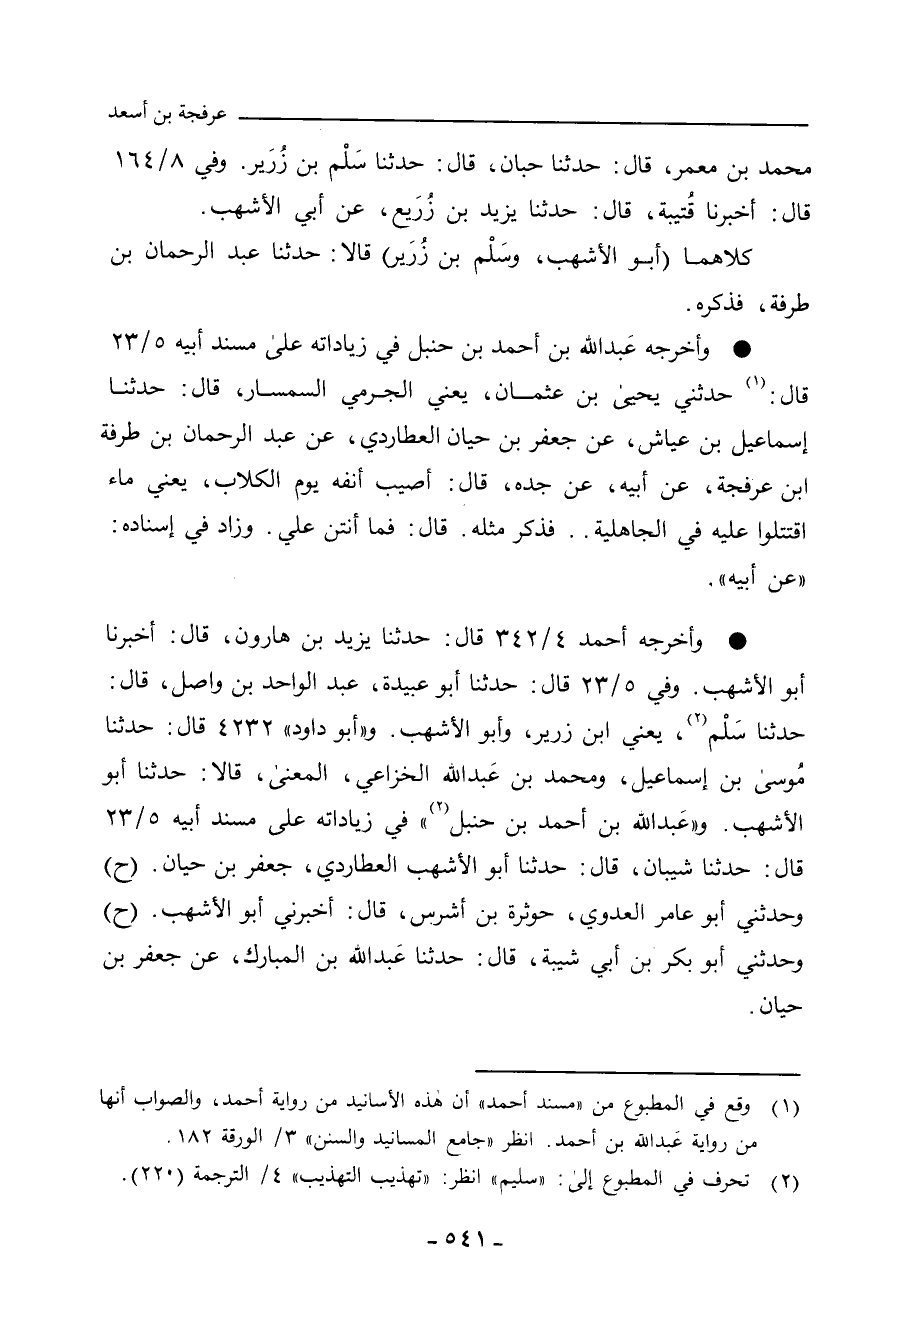 عرفجة بن أسعد
محمد بن معمر، قال: حدثنا حبان، قال: حدثنا سَلْم بن زُرَير. وفي ١٦٤/٨
قال: أخبرنا قُتيبة، قال: حدثنا يزيد بن زُرَيع، عن أبي الأشهب.
كلاهما (أبو الأشهب، وسَلْم بن زُرَير) قالا: حدثنا عبد الرحمان بن
طرفة، فذكره.
● وأخرجه عَبدالله بن أحمد بن حنبل في زياداته على مسند أبيه ٢٣/٥
قال:(١) حدثني يحيىٰ بن عثمان، يعني الجرمي السمسار، قال: حدثنا
إسماعيل بن عياش، عن جعفر بن حيان العطاردي، عن عبد الرحمان بن طرفة
ابن عرفجة، عن أبيه، عن جده، قال: أصيب أنفه يوم الكلاب، يعني ماء
اقتتلوا عليه في الجاهلية.. فذكر مثله. قال: فما أنتن علي. وزاد في إسناده:
«عن أبيه».
● وأخرجه أحمد ٣٤٢/٤ قال: حدثنا يزيد بن هارون، قال: أخبرنا
أبو الأشهب. وفي ٢٣/٥ قال: حدثنا أبو عبيدة، عبد الواحد بن واصل، قال:
حدثنا سَلْم(٢)، يعني ابن زرير، وأبو الأشهب. و«أبو داود» ٤٢٣٢ قال: حدثنا
مُوسىٰ بن إسماعيل، ومحمد بن عَبدالله الخزاعي، المعنىٰ، قالا: حدثنا أبو
الأشهب. و«عَبدالله بن أحمد بن حنبل(٢)» في زياداته على مسند أبيه ٢٣/٥
قال: حدثنا شيبان، قال: حدثنا أبو الأشهب العطاردي، جعفر بن حيان. (ح)
وحدثني أبو عامر العدوي، حوثرة بن أشرس، قال: أخبرني أبو الأشهب. (ح)
وحدثني أبو بكر بن أبي شيبة، قال: حدثنا عَبدالله بن المبارك، عن جعفر بن
حيان.
(١) وقع في المطبوع من «مسند أحمد» أن هٰذه الأسانيد من رواية أحمد، والصواب أنها
من رواية عَبدالله بن أحمد. انظر «جامع المسانيد والسنن» ٣/ الورقة ١٨٢.
(٢) تحرف في المطبوع إلىٰ: «سليم» انظر: «تهذيب التهذيب» ٤/ الترجمة (٢٢٠).
- ٥٤١ -